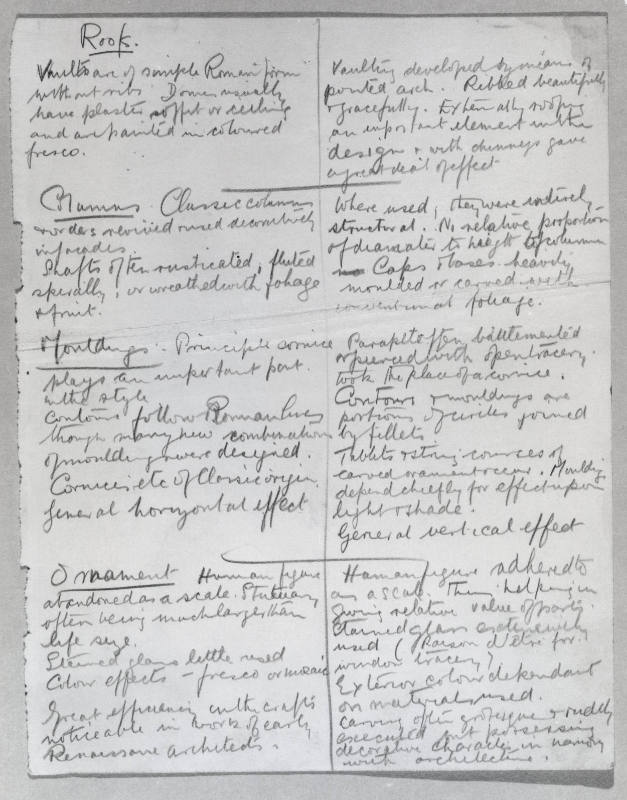 Roofs.
Vaults are of simple Roman form
without ribs. Domes usually
have plaster soffit or ceiling
and are painted in coloured
fresco.
Columns. Classic columns
& orders revived & used decoratively
in facades.
Shafts often rusticated, fluted
spirally, or wreathed with foliage
& fruit.
Mouldings. Principle cornice
plays an important part
in the style
Contours follow Roman lines
though many new combinations
of mouldings were designed.
Cornices etc of Classic origin
General horizontal effect
Ornament Human figure
abandoned as a scale. Statuary
often being much larger than
life size.
Stained glass little used
Colour effects – fresco or mosaic
Great efficiency in the crafts
noticeable in work of early
Renaissance architects.
Vaulting developed by means of
pointed arch. Ribbed beautifully
& gracefully. Externally roofing
an important element in the
design & with chimneys gave
a great deal of effect
Where used, they were entirely
structural. No relative proportion
of diameter to height of column
Caps & bases heavily
moulded or carved with
conventional foliage.
Parapets often battlemented
or pierced with open tracery
took the place of a cornice.
Contours & mouldings are
portions of circles joined
by fillets
Tablets & string courses of
carved ornament occur. Mouldings
depend chiefly for effect upon
light & shade.
General vertical effect
Human figure adhered to
as a scale. Thus helping in
giving relative value of parts.
Stained glass extensively
used (Raison d'etre for
window tracery)
Exterior colour dependant
on materials used.
Carving often grotesque & rudely
executed but possessing
decorative character in harmony
with architecture.